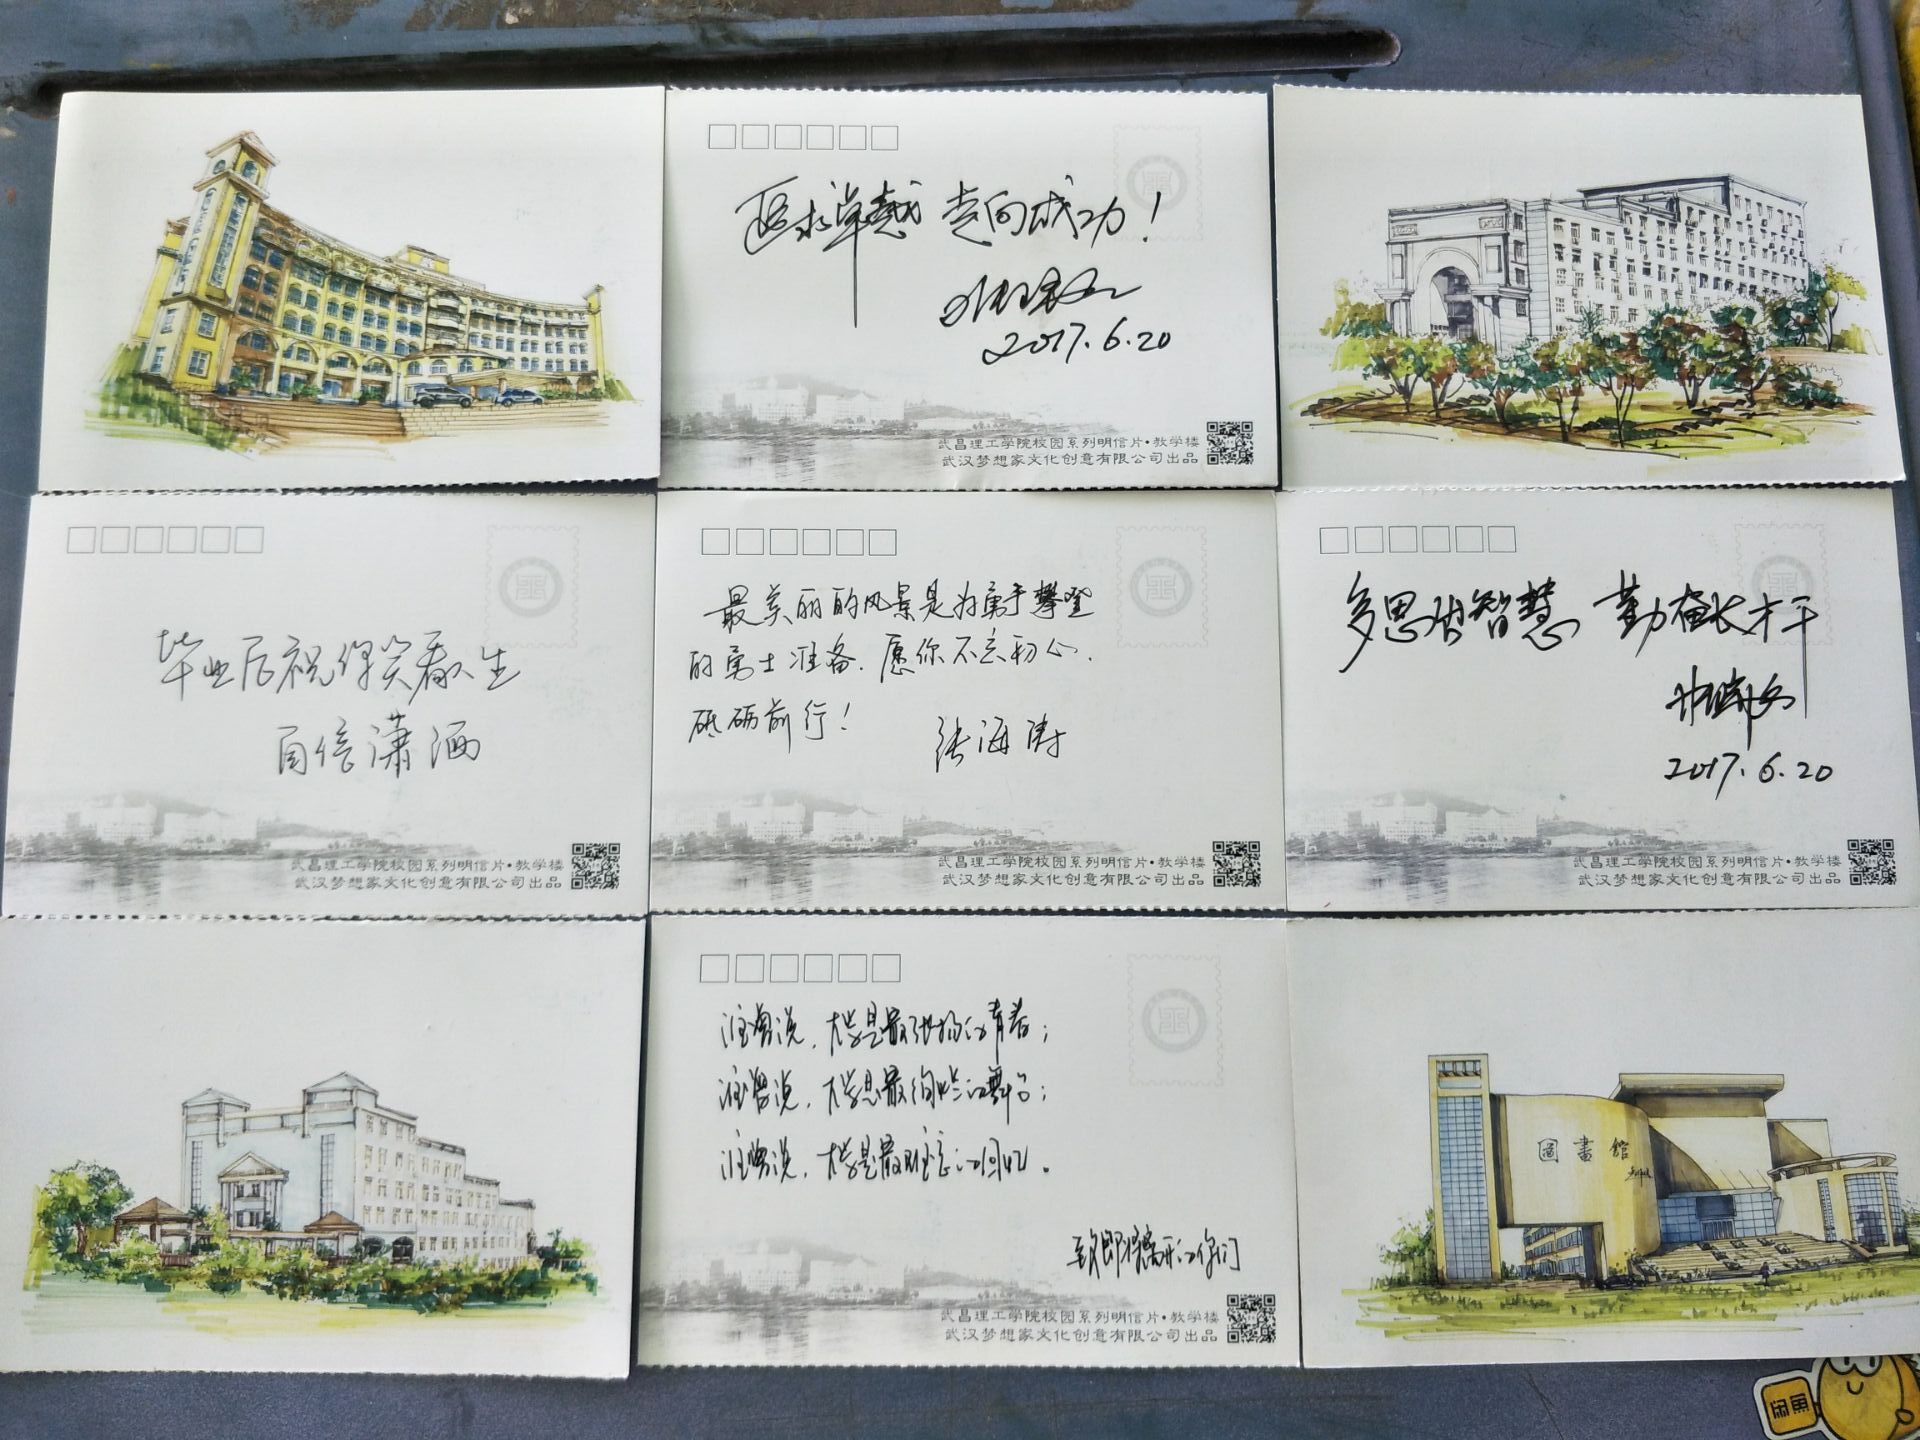 追求卓越 走向成功！
2017.6.20
武昌理工学院校园系列明信片·教学楼
武汉梦想家文化创意有限公司出品
毕业后祝你笑看人生
自信潇洒
武昌理工学院校园系列明信片·教学楼
武汉梦想家文化创意有限公司出品
最美丽的风景是为勇于攀登
的勇士准备.愿你不忘初心.
砥砺前行！
张海涛
武昌理工学院校园系列明信片·教学楼
武汉梦想家文化创意有限公司出品
多思出智慧 勤奋长才干
2017.6.20
武昌理工学院校园系列明信片·教学楼
武汉梦想家文化创意有限公司出品
汪曾说，大学是最张扬的青春；
汪曾说，大学是最绚烂的舞台；
汪曾说，大学是最难忘的回忆。
致即将离开的你们
武昌理工学院校园系列明信片·教学楼
武汉梦想家文化创意有限公司出品
圖書館
闲鱼